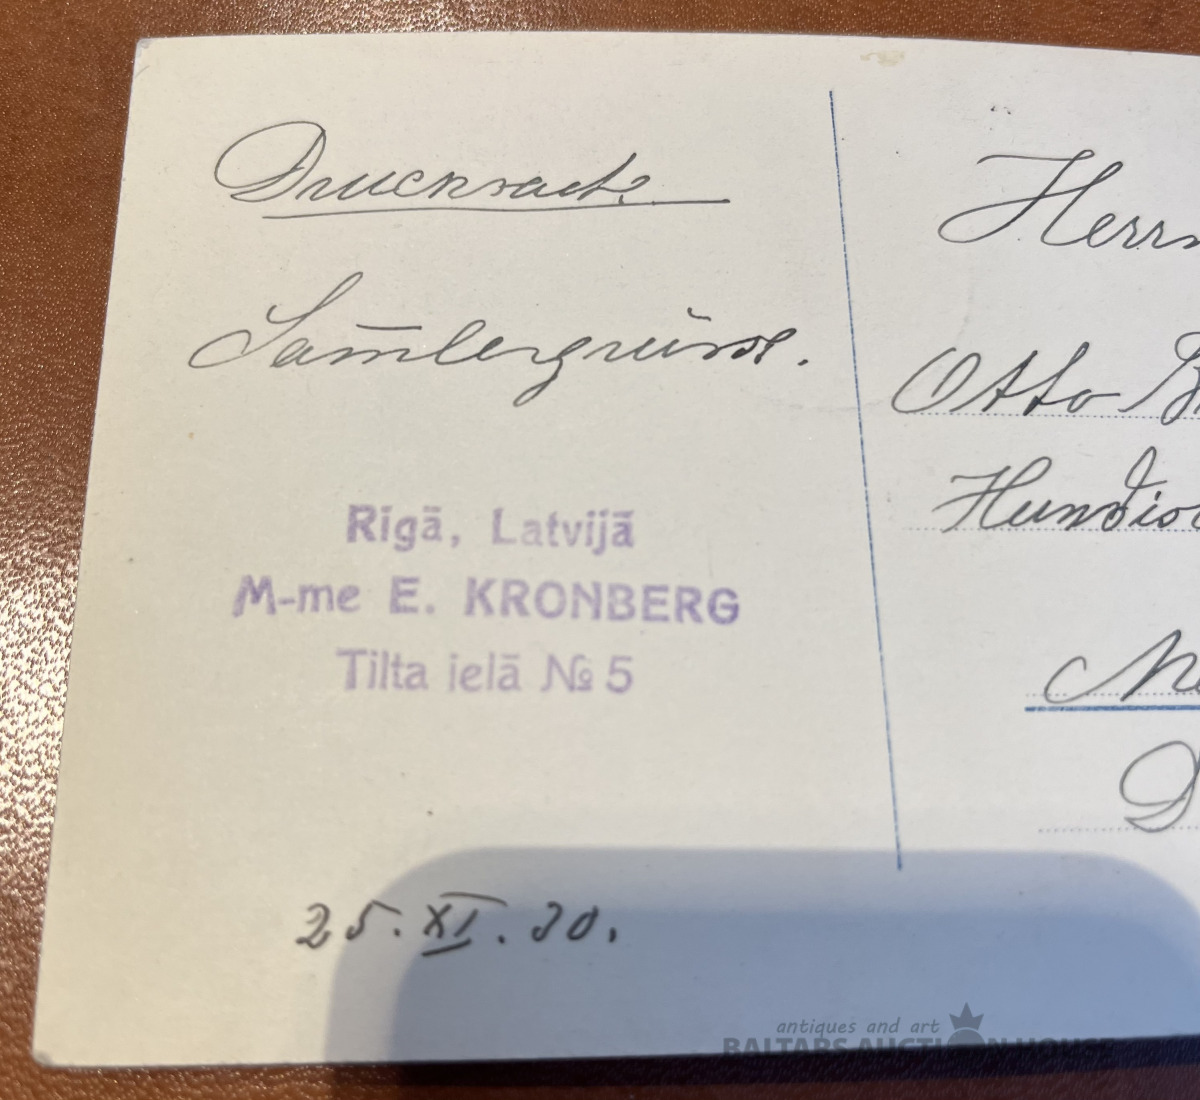 Drucksache
Sam̄lergrüsse.
Rigā, Latvijā
M-me E. KRONBERG
Tilta ielā № 5
25. XI. 30.
Herrn
Otto
antiques and art
BALTARS AUCTION HOUSE